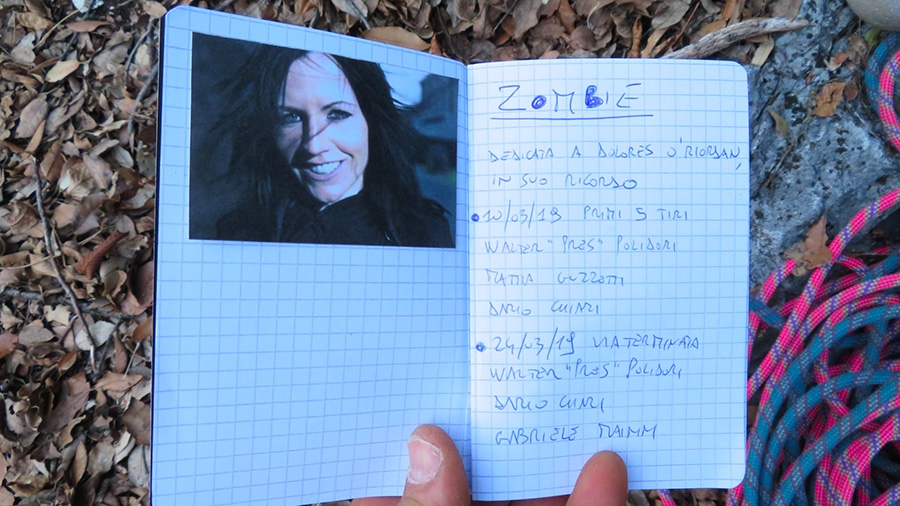 ZOMBIE
DEDICATA A DOLORES O'RIORDAN,
IN SUO RICORDO
10/03/19 PRIMI 5 TIRI
WALTER "PRES" POLIDORI
MATTIA GUZZETTI
DARIO CUINZI
24/03/19 VIA TERMINATA
WALTER "PRES" POLIDORI
DARIO
GABRIELE